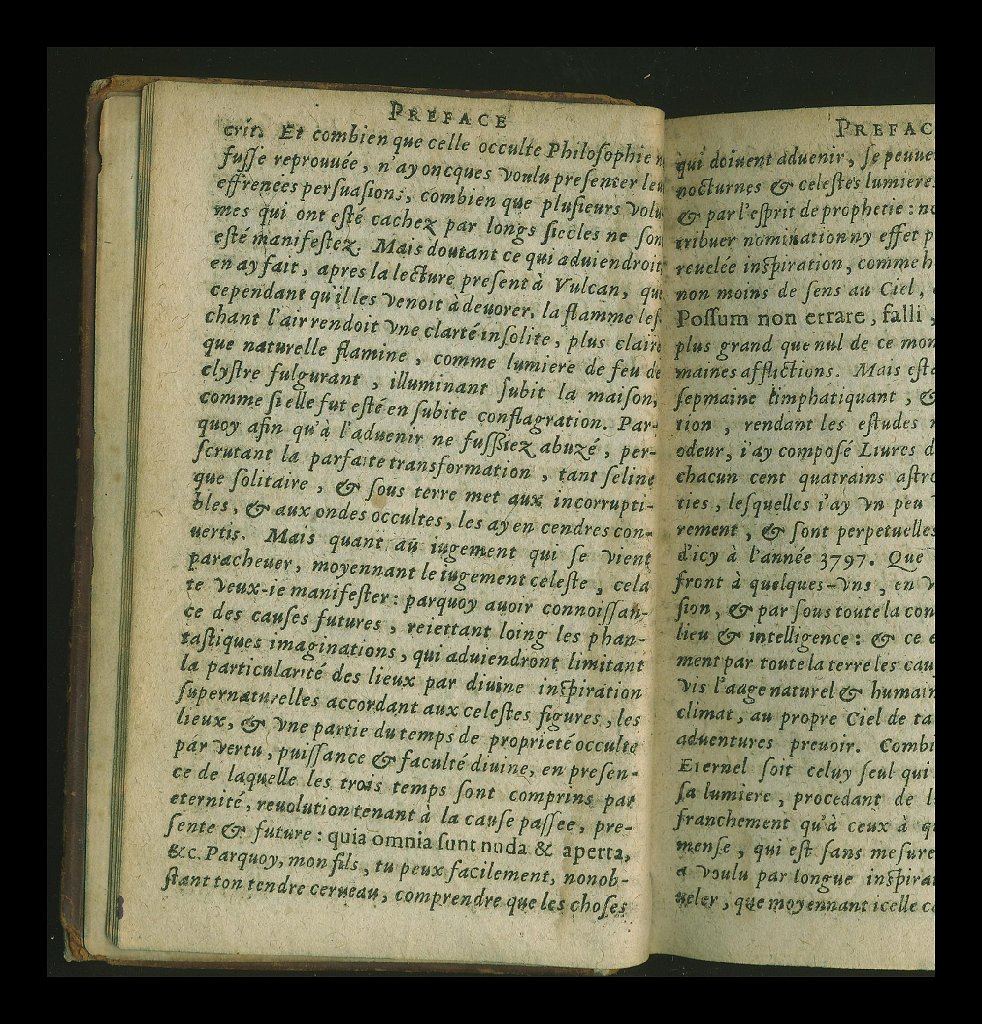 PREFACE
crit. Et combien que celle occulte Philoſophie
fuſſe reprouuée, n'ay oncques voulu preſenter leu
effrenees perſuaſions, combien que pluſieurs volu
mes qui ont eſté cachez par longs ſiecles ne ſon
eſté manifeſtez. Mais doutant ce qui aduiendroit
en ay fait, apres la lecture preſent à Vulcan, que
cependant qu'il les venoit à deuorer, la flamme leſ
chant l'air rendoit vne clarté inſolite, plus claire
que naturelle flamine, comme lumiere de feu de
clyſtre fulgurant, illuminant ſubit la maiſon,
comme ſi elle fut eſté en ſubite conflagration. Par-
quoy afin qu'à l'aduenir ne fuſſiez abuzé, per-
ſcrutant la parfaite transformation, tant ſeline
que ſolitaire, & ſous terre met aux incorrupti-
bles, & aux ondes occultes, les ay en cendres con-
uertis. Mais quant au iugement qui ſe vient
paracheuer, moyennant le iugement celeſte, cela
te veux-ie manifeſter: parquoy auoir connoiſſan-
ce des cauſes futures, reiettant loing les phan-
taſtiques imaginations, qui aduiendront limitant
la particularité des lieux par diuine inſpiration
ſupernaturelles accordant aux celeſtes figures, les
lieux, & vne partie du temps de proprieté occulte
par vertu, puiſſance & faculté diuine, en preſen-
ce de laquelle les trois temps ſont comprins par
eternité, reuolution tenant à la cauſe paſſee, pre-
ſente & future: quia omnia ſunt nuda & aperta,
&c. Parquoy, mon fils, tu peux facilement, nonob-
ſtant ton tendre cerueau, comprendre que les choſes
PREFAC
qui doiuent aduenir, ſe peuue
nocturnes & celeſtes lumiere
& par l'eſprit de prophetie: no
tribuer nomination ny effet p
reuelée inſpiration, comme h
non moins de ſens au Ciel,
Poſſum non errare, falli,
plus grand que nul de ce mon
maines afflictions. Mais eſta
ſepmaine limphatiquant, &
tion, rendant les eſtudes
odeur, i'ay compoſé Liures d
chacun cent quatrains aſtro
ties, leſquelles i'ay vn peu
rement, & ſont perpetuelles
d'icy à l'année 3797. Que
front à quelques-vns, en v
ſion, & par ſous toute la con
lieu & intelligence: & ce
ment par toute la terre les cau
vis l'aage naturel & humain
climat, au propre Ciel de ta
aduentures preuoir. Combi
Eternel ſoit celuy ſeul qui
ſa lumiere, procedant de
franchement qu'à ceux à q
menſe, qui eſt ſans meſure
a voulu par longue inſpirat
ueler, que moyennant icelle c